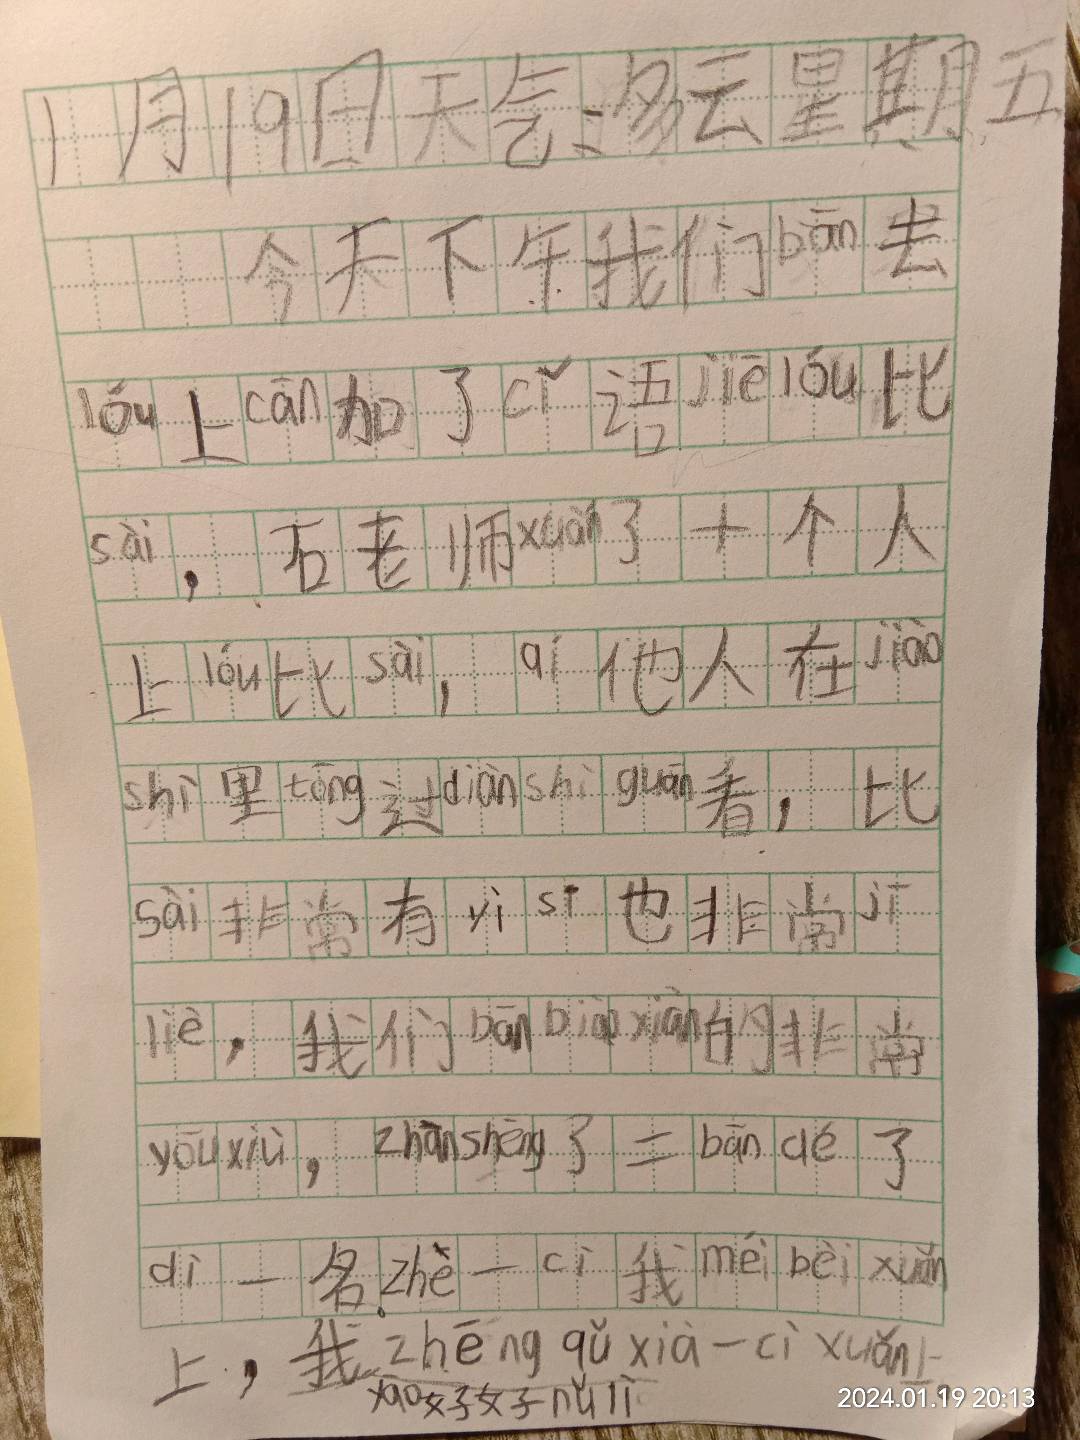 1月19日天气:多云星期五
今天下午我们bān去
lóu上cān加了cǐ语jiē lóu比
sài,石老师xuǎn了十个人
上lóu比sài,qí他人在jiào
shì里tōng过diàn shì guān看,比
sài非常有yì sī也非常jī
liè,我们bān biǎo xiàn的非常
yōu xiù,zhàn shèng了二bān dé了
dì一名.zhè一cì我méi bèi xuǎn
上,我zhēng qǔ xià一cì xuǎn上
yào好好nǔ lì
2024.01.19 20:13